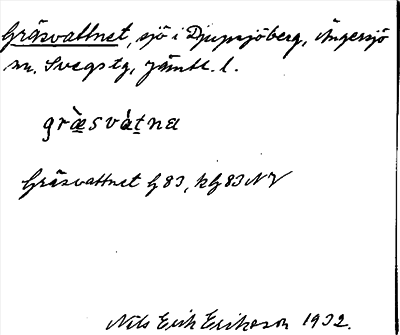 Gräsvattnet, sjö i Djupsjöberg, Ängersjö
sn. Svegs tg, Jämtl. l.
gr<u>æ̀</u>svà<u>t</u>na
Gräsvattnet G 83, kG 83 NV
Nils Erik Erikson 1932.